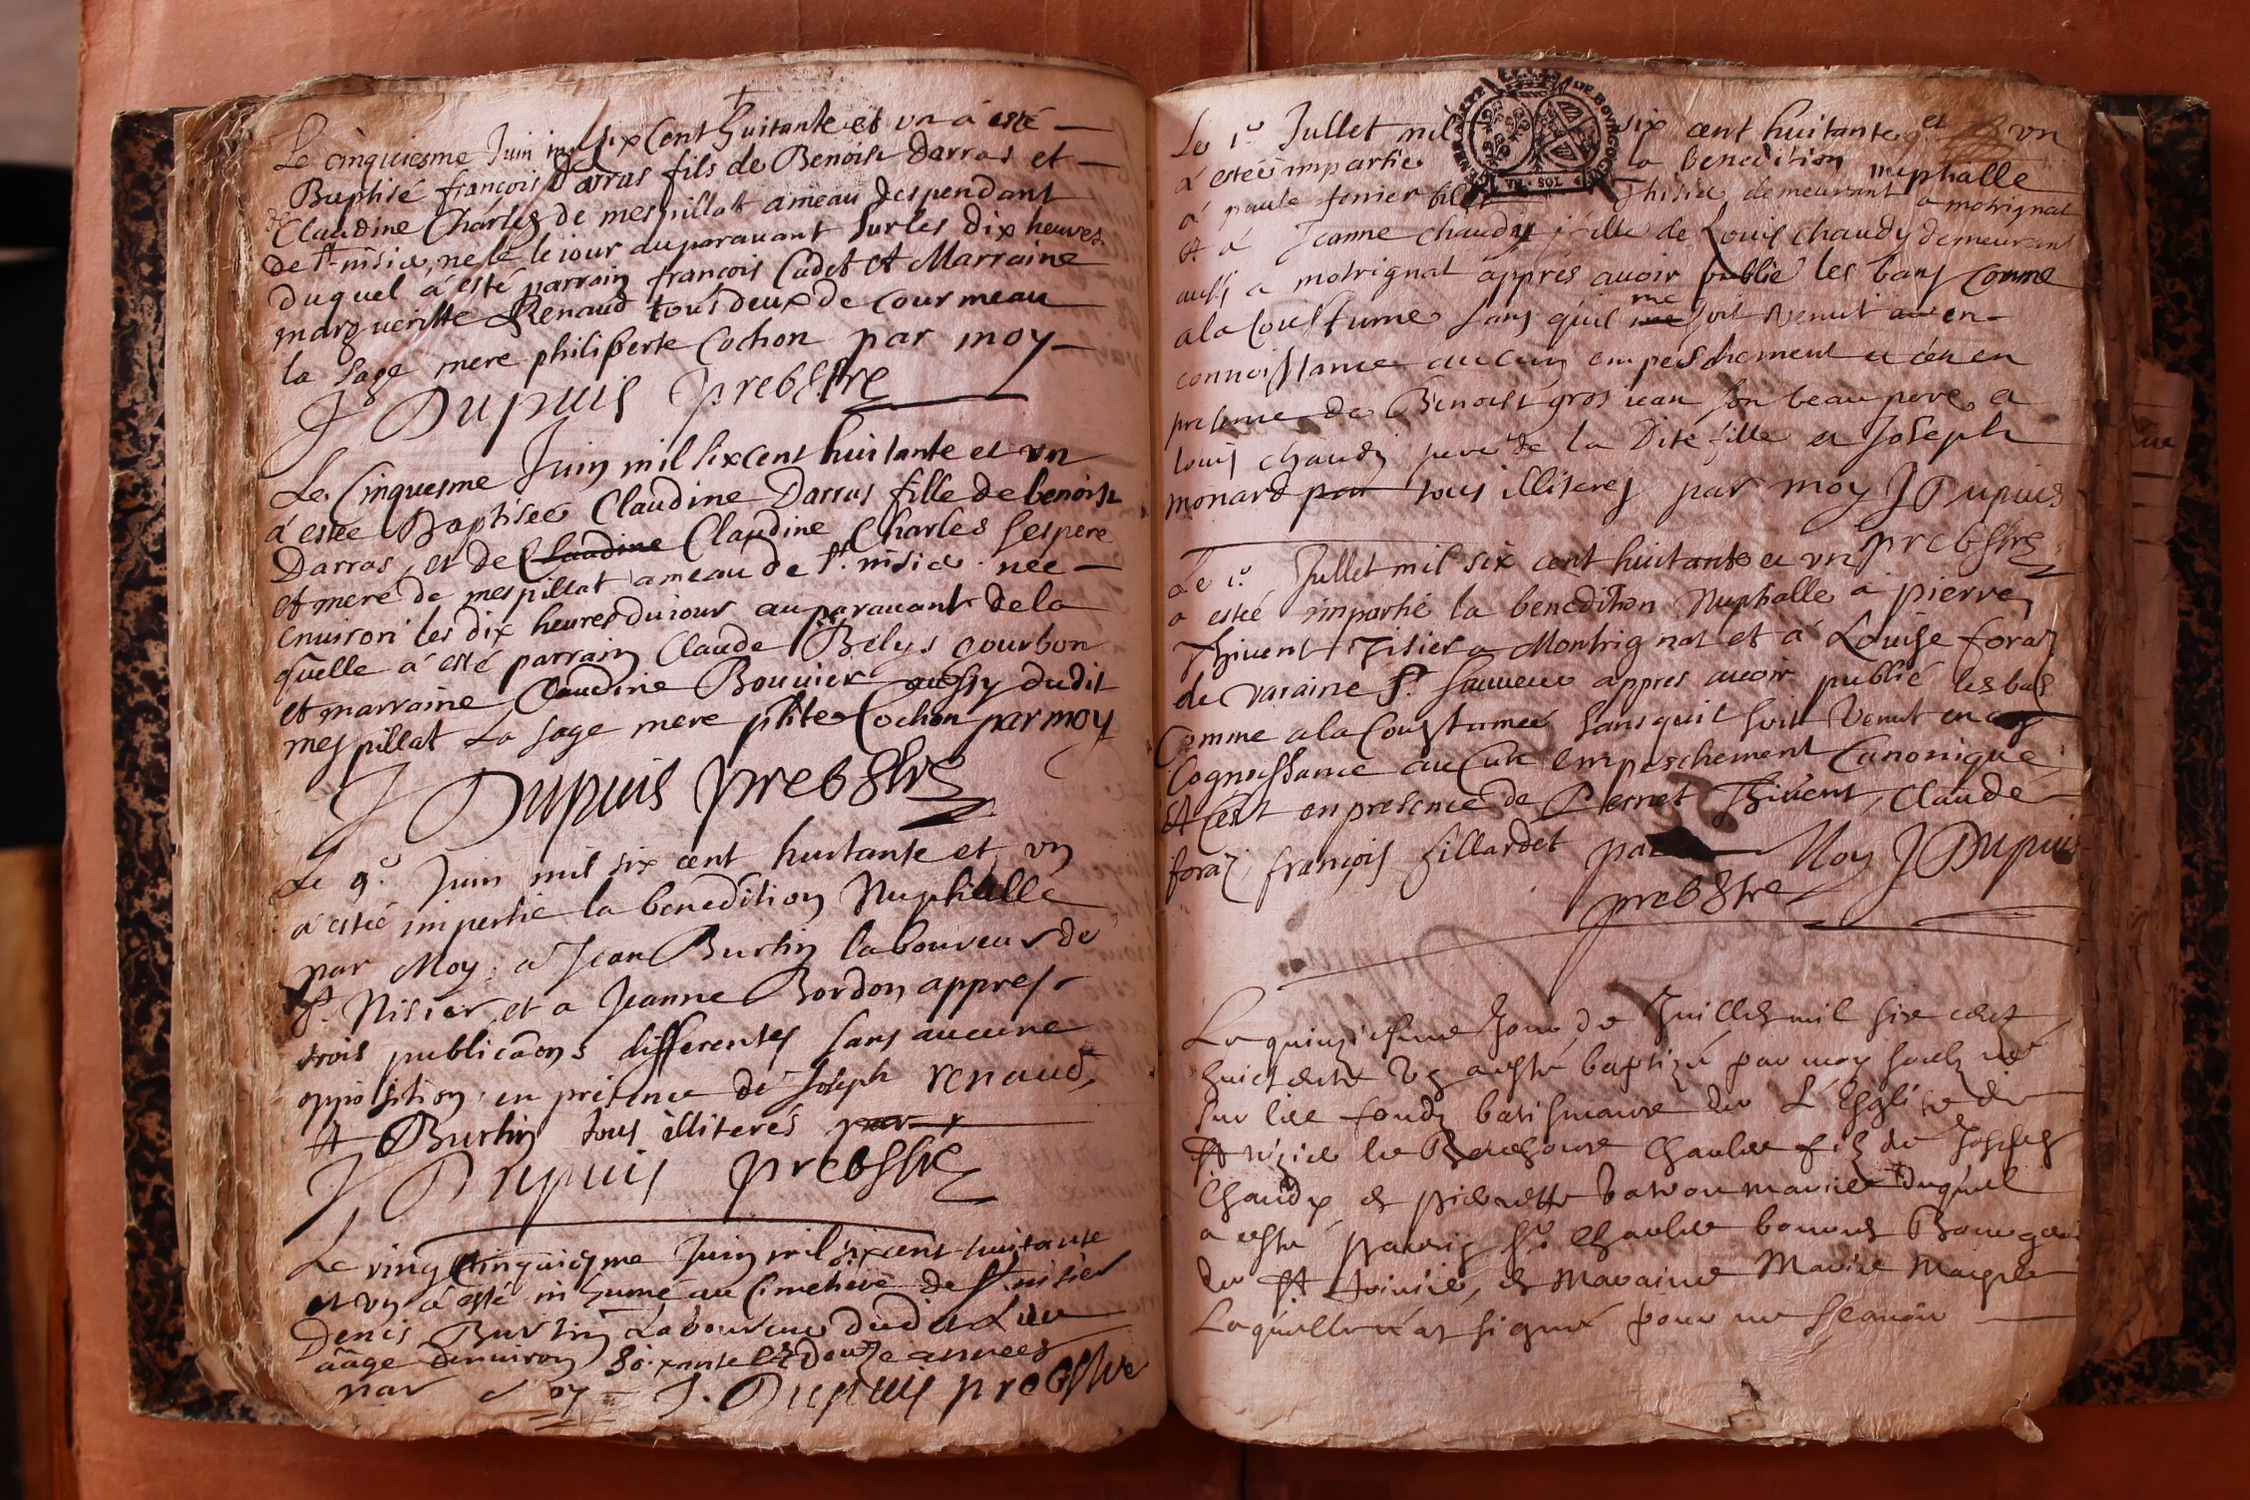 Le cinquiesme Juin mil six Cent huitante et un à esté
Baptisé françois Darras fils de Benoist Darras et
de Claudine Charles de mespillat ameau despendant
de St nisie, ne le jour auparavant sur les Dix heures
duquel à esté parrain françois Cadet et Marraine
margueritte Renaud tous deux de courmeau
la sage mere philiberte Cochon par moy
J Dupuis prebstre
Le Cinquesme Juin mil six Cent huitante et un
à estée Baptisée Claudine Darras fille de benoist
Darras, et de Claudine Claudine Charles ses pere
et mere de mespillat ameau de St. nisie née
environ les dix heures du jour auparavant de la
quelle à esté parrain Claude Bourbon
et marraine Claudine Bouvier aussy dudit
mespillat La sage mere phte Cochon par moy
J Dupuis prebstre
Le 9e Juin mil six cent huitante et un
à estée impertie la benedition Nuphalle
par Moy, à Jean Burtin laboureur de
St. Nisier, et a Jeanne Bordon appres
trois publicaons differentes sans aucune
opposition, en presence de Joseph renaud
et Burtin tous illiterés par
J Dupuis prebstre
Le vingt Cinquiesme Juin mil six cent huitante
et un à esté inhumé au Cimetiere de St. nisier
Denis Burtin Laboureur dudit Lieu
aâge denviron soixante et douze années
par Moy J. Dupuis prebstre
Le 1er Jullet mil six cent huitante et un
à estée impartie la benedition nuphalle
à paule tisier demeurant a motrignat
et à Jeanne chaudy fille de Louis chaudy demeurant
aussy a motrignat appres avoir publié les bans comme
a la Coustume sans quil me soit venut en
connoissance aucun empeschement et c'en en
presence de Benoist grosjean son beaupere, et
louis chaudy pere de la Dite fille et Joseph
monard par tous illiteres par moy J Dupuis
prebstre
Le 1er Jullet mil six cent huitante et un
a estée impartié la benedition Nuphalle à pierre
Thivent Tisier a Montrignat et à Louise foraz
de varaine St. Sauveur appres avoir publié les bas
Comme a la Coustume sans quil soit venut en
Cognoissance aucun empeschement Canonique
et c'est en presence de Pernet Thivent, Claude
foraz françois fillardet par Moy J Dupuis
prebstre
Le quinziesme Jour de Juillet mil six cent
huictante un a esté baptizé par moy
sur les fondz batismaux de L'Esglise de
St nizie le Charles filz de Joseph
Chaudy et pierrette duquel
a esté parrin Sr. Charles
de St et Maraine Marie
Laquelle n'at signé pour ne scavoir